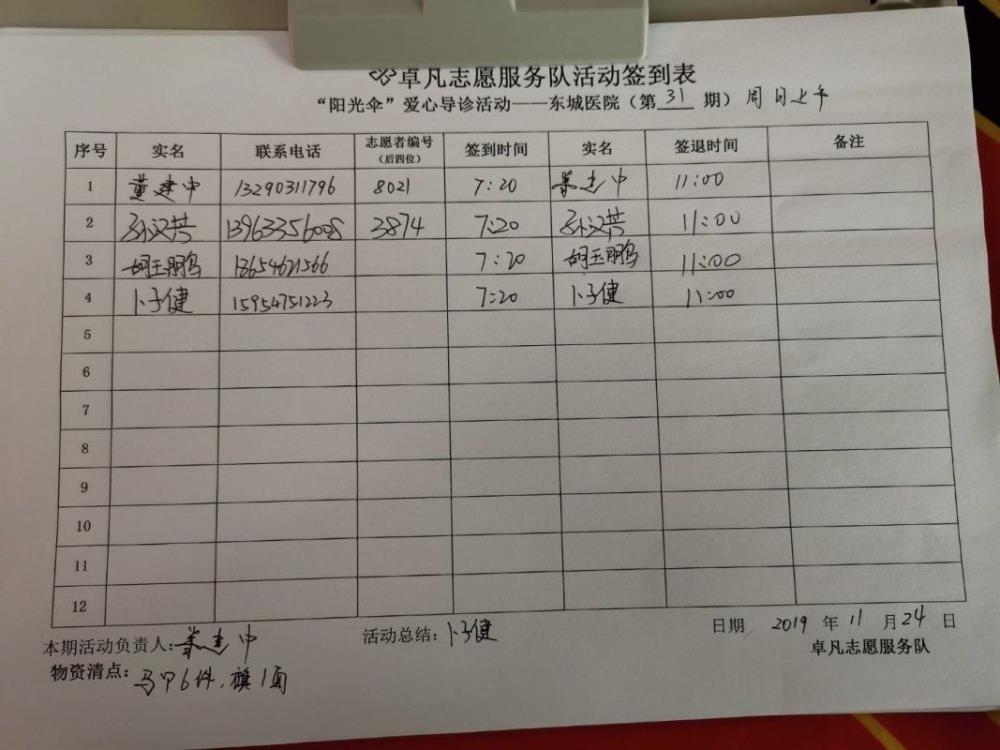 卓凡志愿服务队活动签到表
“阳光伞”爱心导诊活动——东城医院（第 31 期）周日上午
序号 实名 联系电话 志愿者编号（后四位） 签到时间 实名 签退时间 备注
1 董建中 13290311796 8021 7:20 董建中 11:00
2 孙汉共 13963356008 3874 7:20 孙汉共 11:00
3 胡玉鹏 13654621566 7:20 胡玉鹏 11:00
4 卜子健 15954751223 7:20 卜子健 11:00
5
6
7
8
9
10
11
12
本期活动负责人:董建中 活动总结:卜子健 日期 2019 年 11 月 24 日
物资清点:马甲6件、旗1面 卓凡志愿服务队